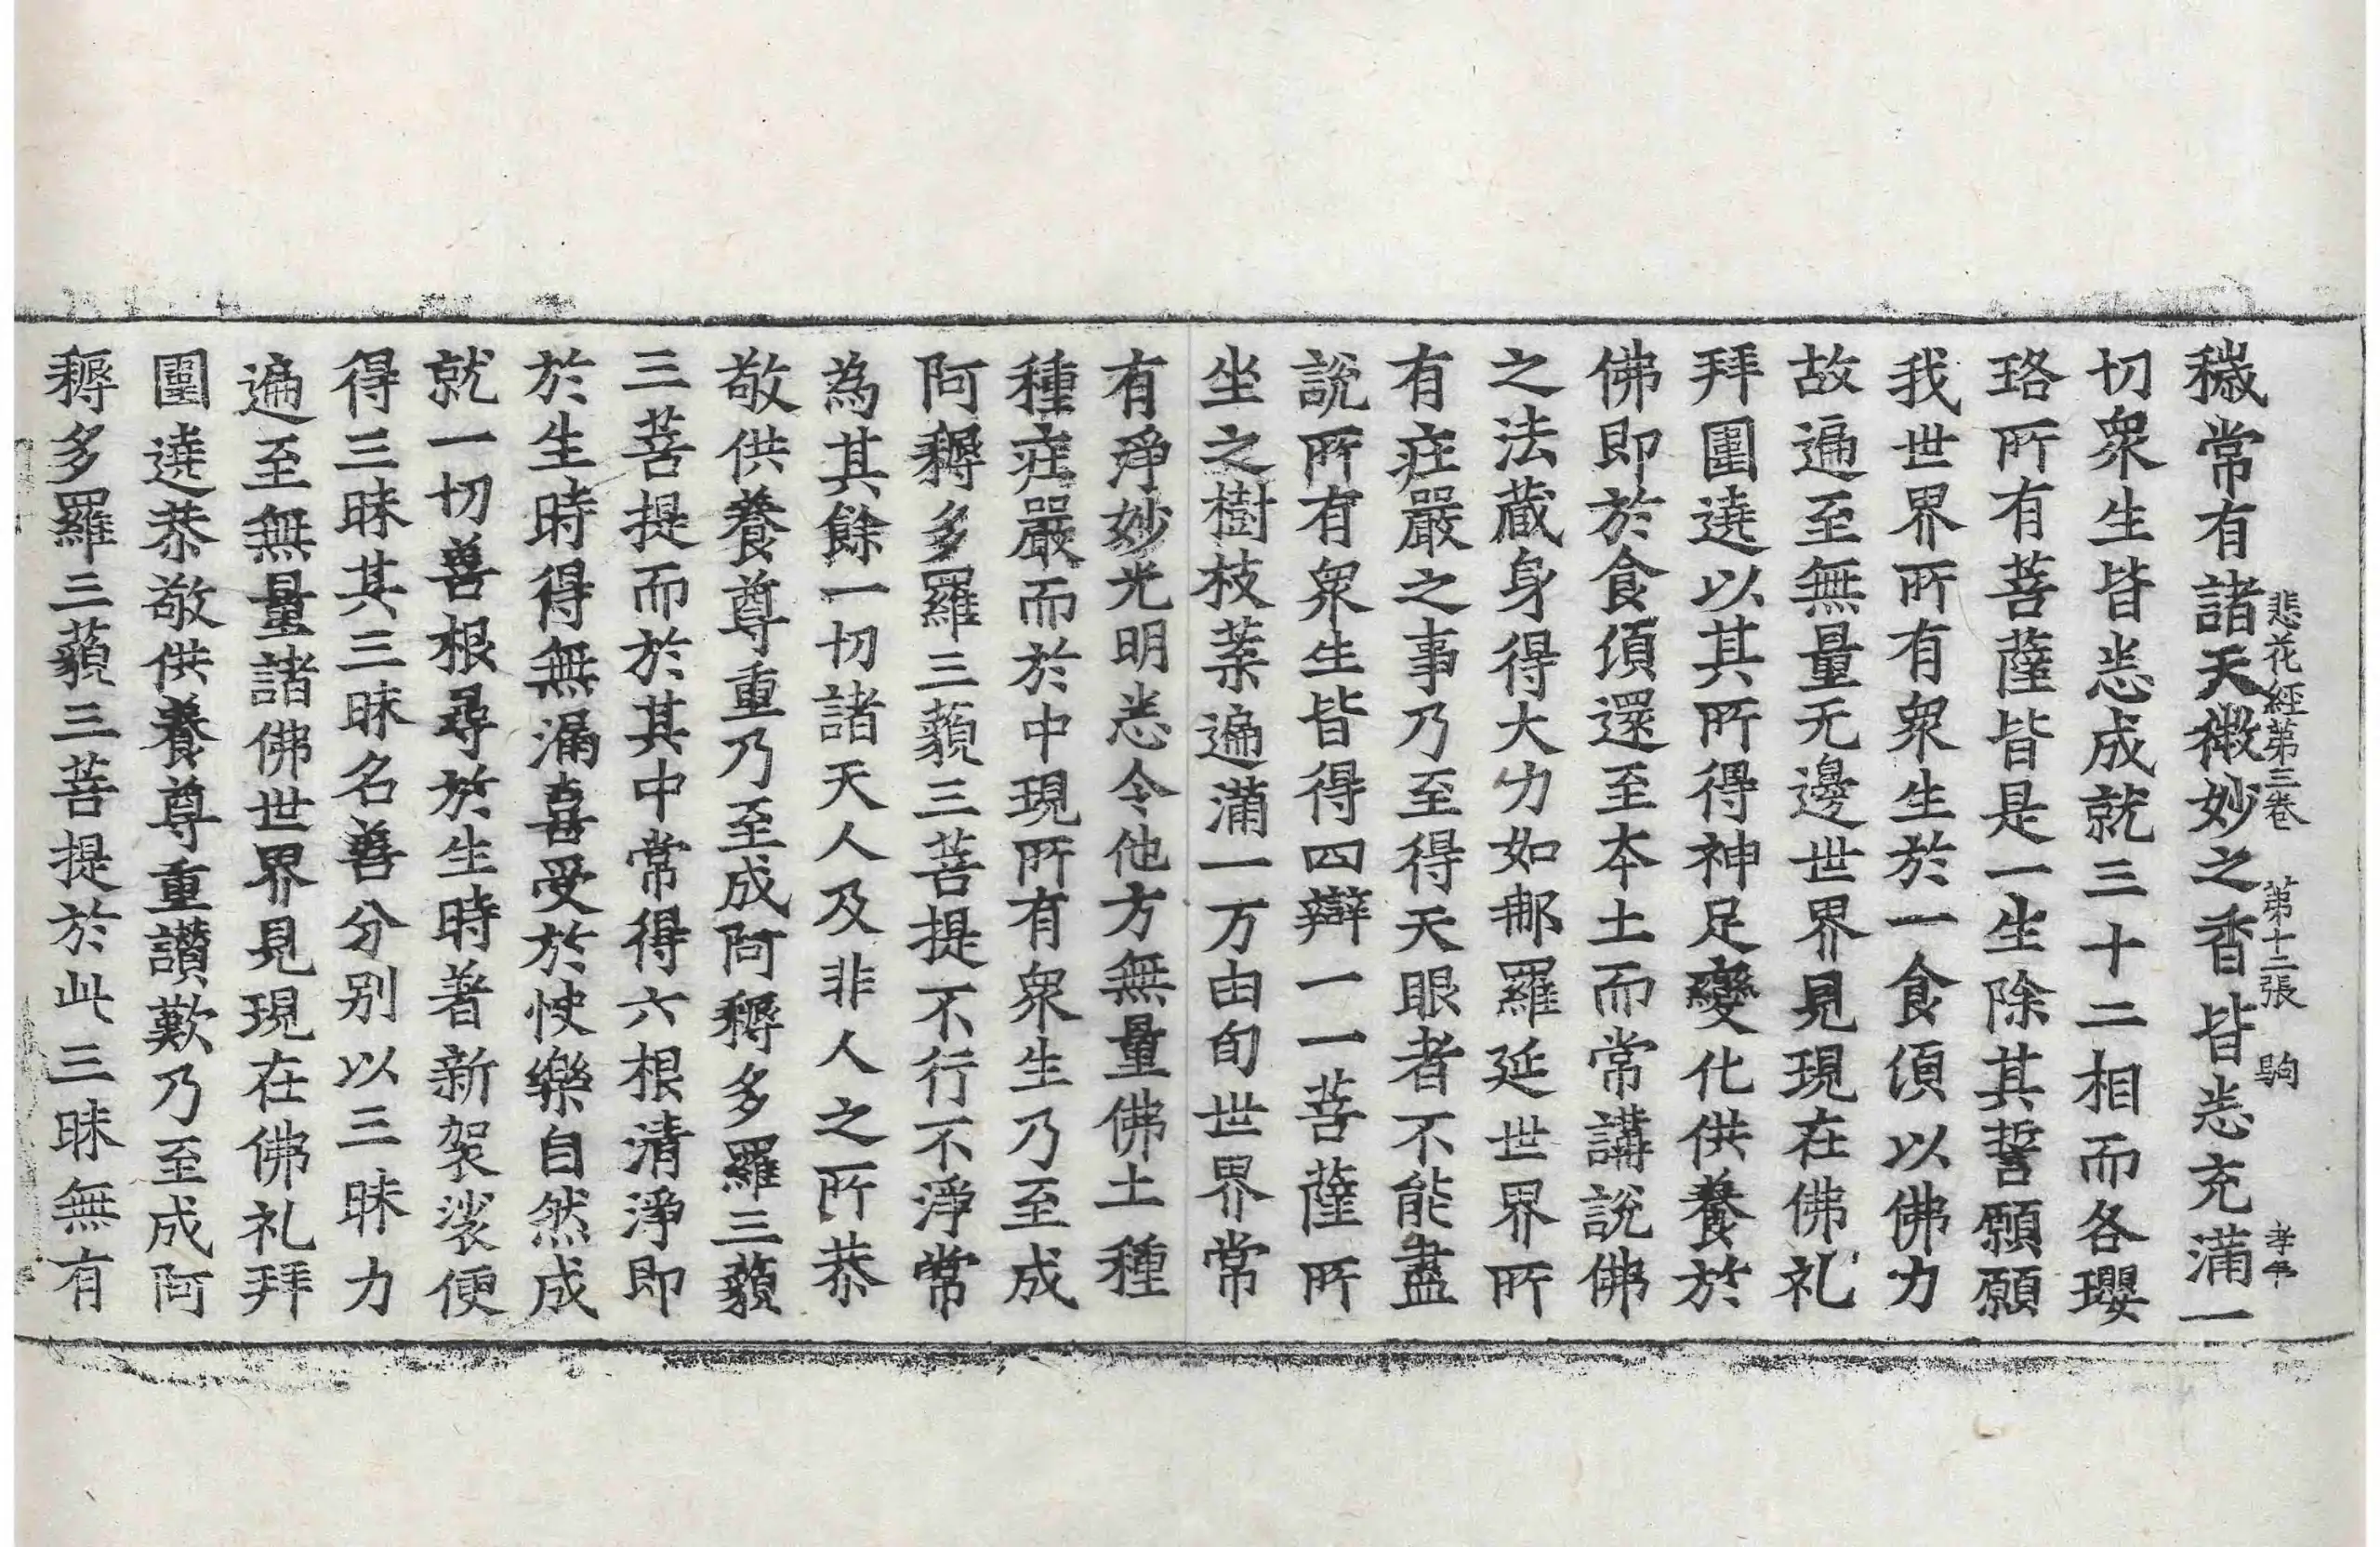 悲花經第三卷　第十二張　駒
穢常有諸天微妙之香皆悉充滿一
切衆生皆悉成就三十二相而各瓔
珞所有菩薩皆是一生除其誓願願
我世界所有衆生於一食頃以佛力
故遍至無量无邊世界見現在佛礼
拜圍遶以其所得神足變化供養於
佛即於食頃還至本土而常講說佛
之法蔵身得大力如那羅延世界所
有庄嚴之事乃至得天眼者不能盡
說所有衆生皆得四辯一一菩薩所
坐之樹枝葉遍滿一万由旬世界常
有淨妙光明悉令他方無量佛土種
種庄嚴而於中現所有衆生乃至成
阿耨多羅三藐三菩提不行不淨常
為其餘一切諸天人及非人之所恭
敬供養尊重乃至成阿耨多羅三藐
三菩提而於其中常得六根清淨即
於生時得無漏喜受於快樂自然成
就一切善根尋於生時著新袈裟便
得三昧其三昧名善分別以三昧力
遍至無量諸佛世界見現在佛礼拜
圍遶恭敬供養尊重讃歎乃至成阿
耨多羅三藐三菩提於此三昧無有